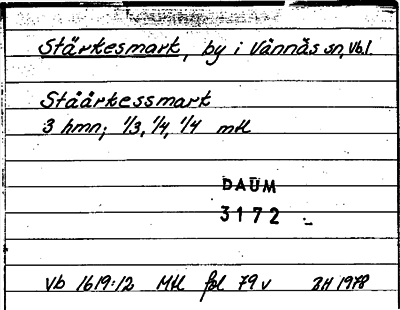 Stärkesmark, by i Vännäs sn, Vb.l.
Stäärkessmark
3 hmn; 1/3, 1/4, 1/4 mtl
DAUM
3172
Vb 1619:12 Mtl fol 79v BH 1978